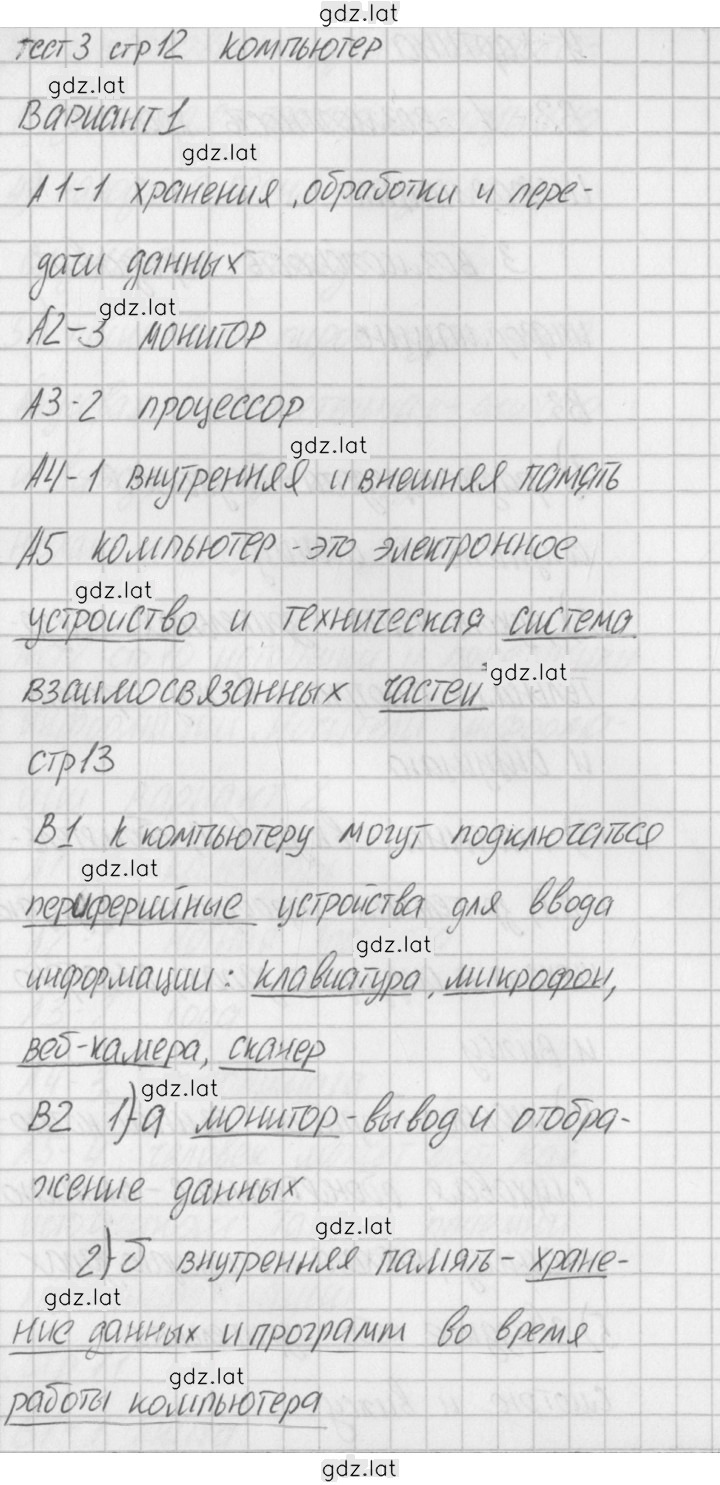 gdz.lat
тест 3 стр 12 компьютер
gdz.lat
Вариант 1
gdz.lat
А1-1 хранения, обработки и пере-
дачи данных
gdz.lat
А2-3 монитор
А3-2 процессор
gdz.lat
А4-1 внутренняя и внешняя память
А5 компьютер - это электронное
gdz.lat
устройство и техническая система
взаимосвязанных частей gdz.lat
стр 13
В1 К компьютеру могут подключаться
gdz.lat
периферийные устройства для ввода
gdz.lat
информации: клавиатура, микрофон,
веб-камера, сканер
gdz.lat
В2 1)-а монитор - вывод и отобра-
жение данных
gdz.lat
2)-б внутренняя память - хране-
gdz.lat
ние данных и программ во время
gdz.lat
работы компьютера
gdz.lat